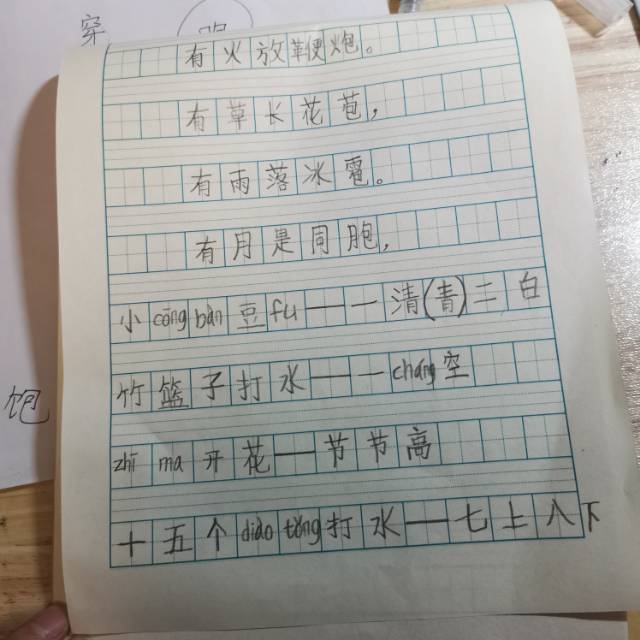 穿
有火放鞭炮。
有草长花苞,
有雨落冰雹。
有月是同胞,
小cōng bàn豆fu——一清(青)二白
竹篮子打水——一chǎng空
zhī ma开花——节节高
饱
十五个diào tǒng打水——七上八下